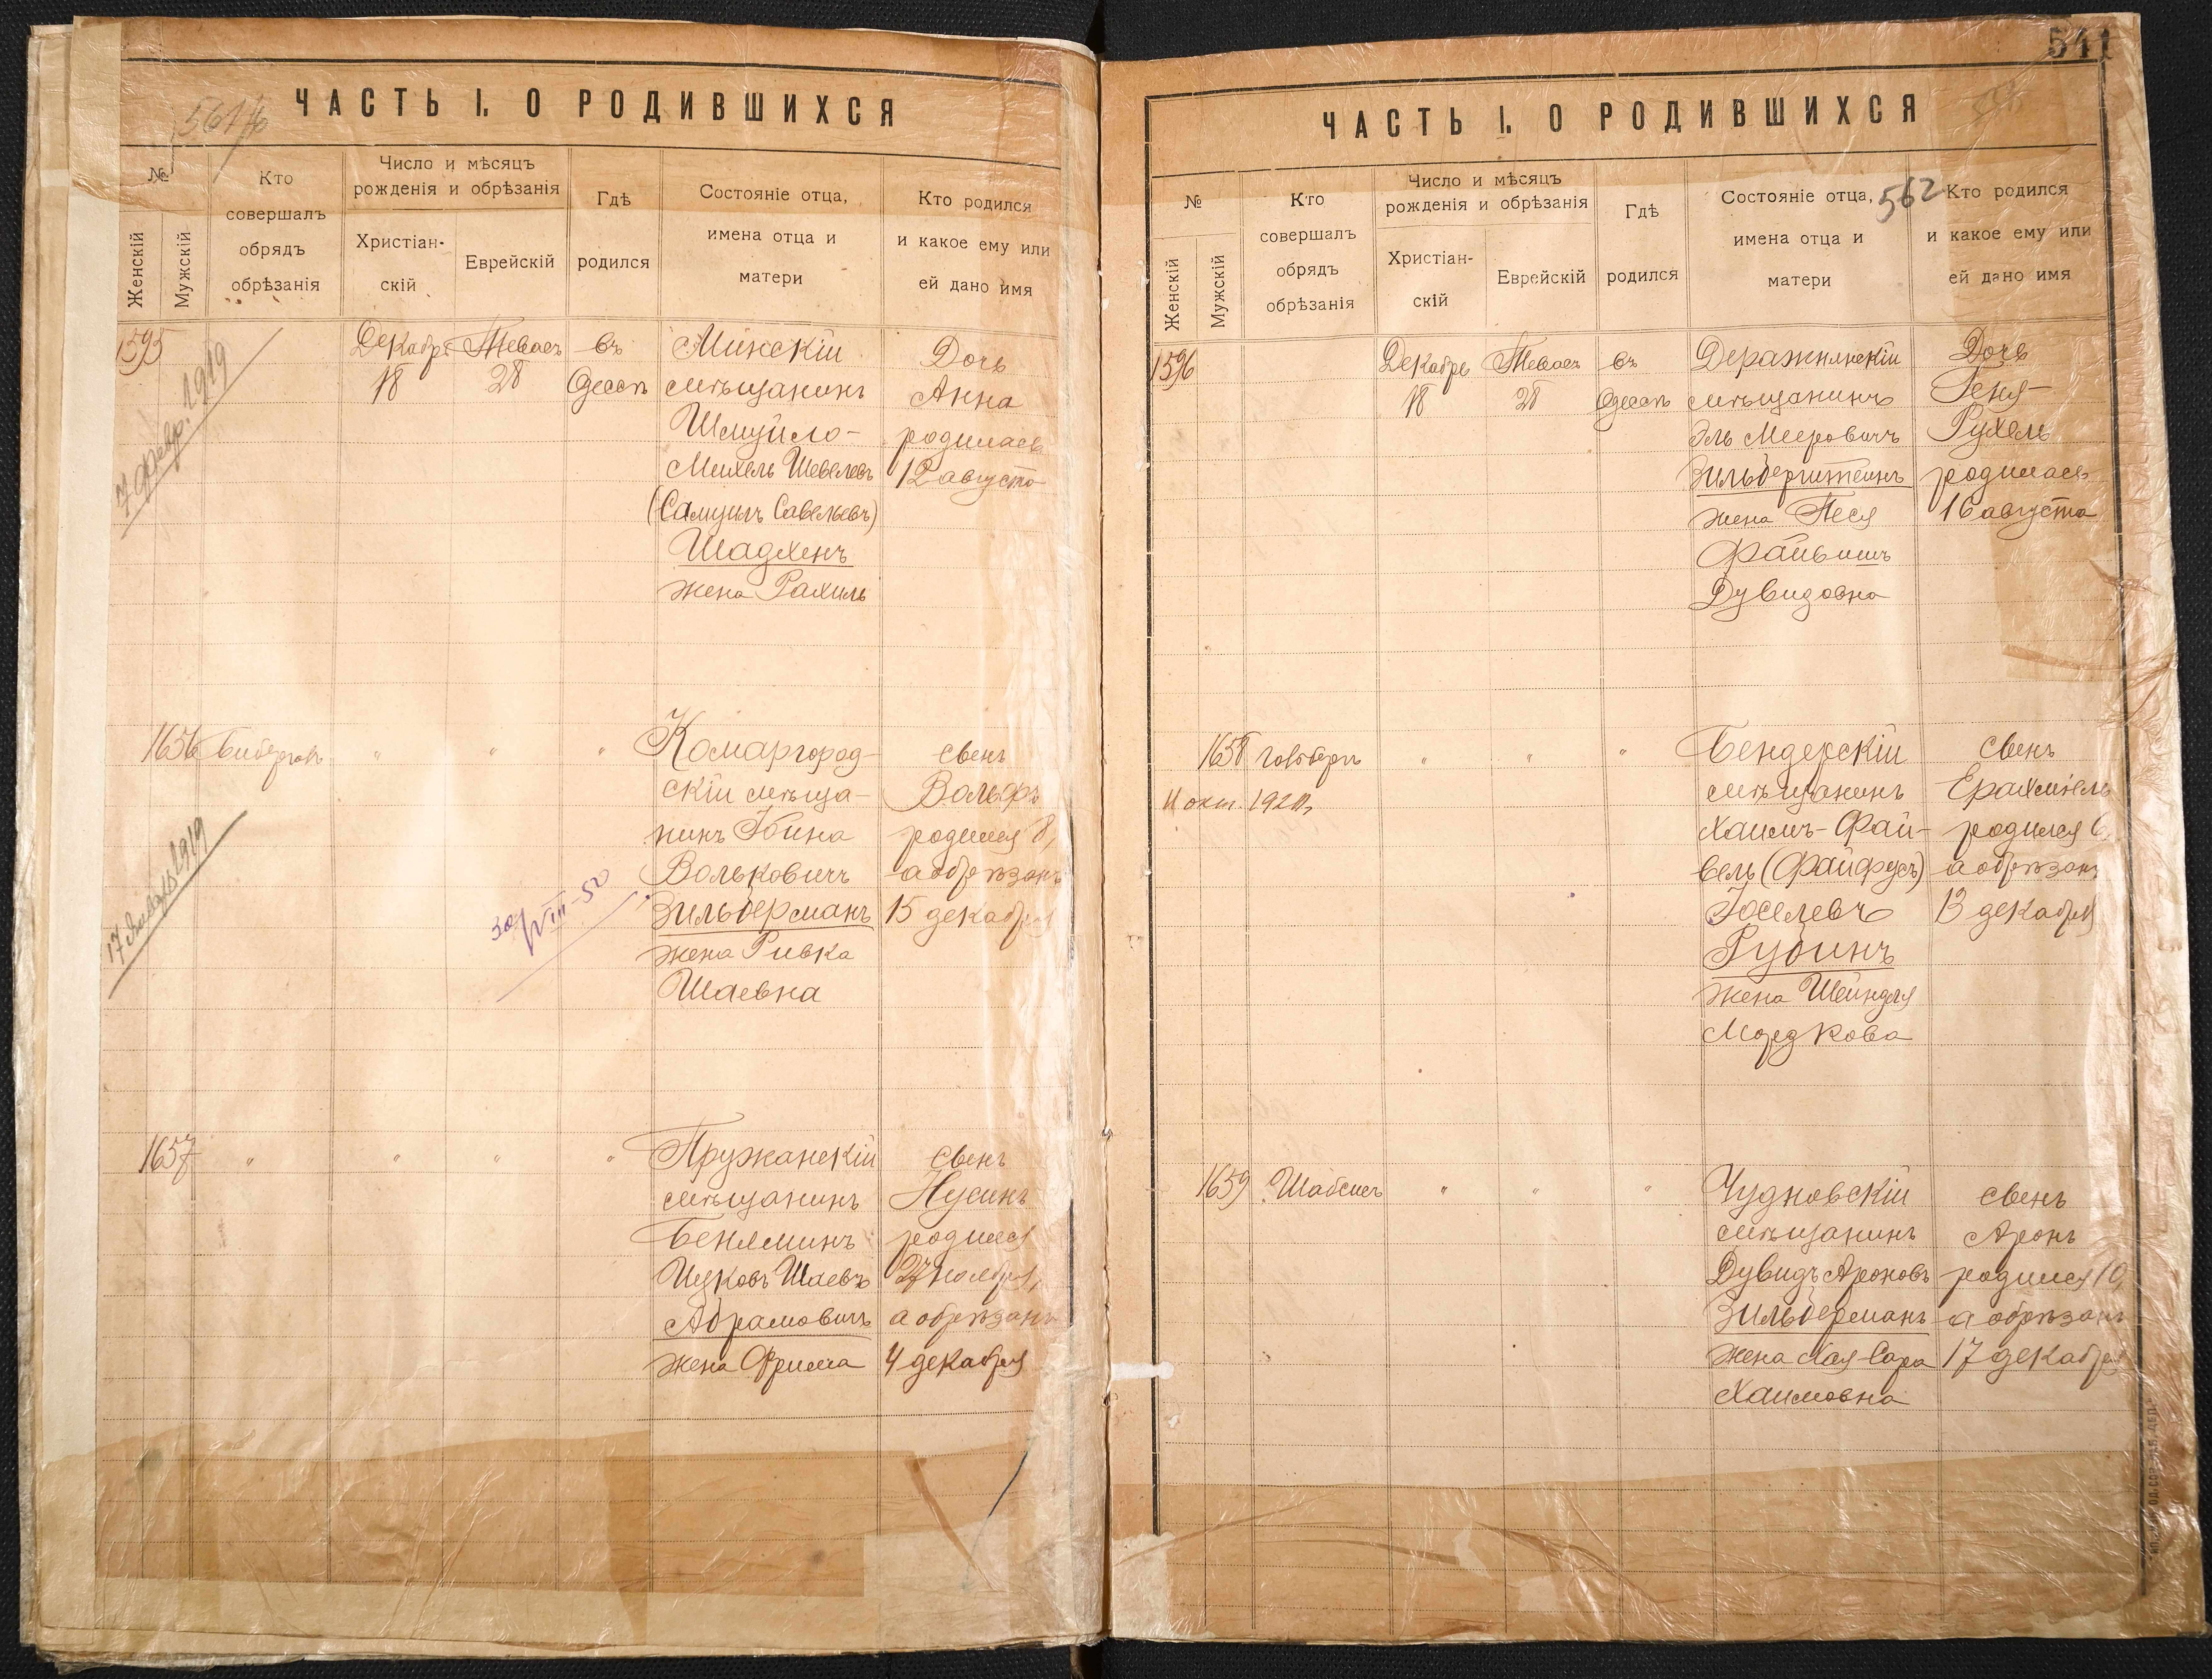 ЧАСТЬ I. О РОДИВШИХСЯ
№
Женскій
Мужскій
Кто
совершалъ
обрядъ
обрѣзанія
Число и мѣсяцъ
рожденія и обрѣзанія
Христіан-
скій
Еврейскій
Гдѣ
родился
Состояніе отца,
имена отца и
матери
Кто родился
и какое ему или
ей дано имя
1595
7 февр. 1919
Декабрь
18
Тевасъ
28
въ
Одессѣ
Минскій
мѣщанинъ
Шмуйло-
Михель Шевелевъ
(Самуилъ Савельевъ)
Шадхенъ
жена Рахиль
Дочь
Анна
родилась
12 августа
1656
17 Января 1919
"
"
"
30/VIII-50
Комаргород-
скій мѣща-
нинъ Іойна
Вольковичъ
Зильберманъ
жена Ривка
Шаевна
сынъ
Вольфъ
родился 8,
а обрѣзанъ
15 декабря
1657
"
"
"
"
Пружанскій
мѣщанинъ
Беніаминъ
Ицковъ Шаевъ
Абрамовичъ
жена Фрима
сынъ
Нусинъ
родился
27 ноября,
а обрѣзанъ
4 декабря
541
ЧАСТЬ I. О РОДИВШИХСЯ
562
№
Женскій
Мужскій
Кто
совершалъ
обрядъ
обрѣзанія
Число и мѣсяцъ
рожденія и обрѣзанія
Христіан-
скій
Еврейскій
Гдѣ
родился
Состояніе отца,
имена отца и
матери
Кто родился
и какое ему или
ей дано имя
1596
Декабрь
18
Тевасъ
28
въ
Одессѣ
Деражнянскій
мѣщанинъ
Эль Мееровичъ
Зильберштейнъ
жена Песя
Файвишъ
Дувидовна
Дочь
Геня-
Рухель
родилась
16 августа
1658
Гольдбергъ
11 окт.
"
"
"
Бендерскій
мѣщанинъ
Хаимъ-Фай-
вель (Файфусъ)
Іоселевъ
Рубинъ
жена Шейндля
Мордкова
сынъ
Ерахміель
родился 6,
а обрѣзанъ
13 декабря
1659
Шабсисъ
"
"
"
Чудновскій
мѣщанинъ
Дувидъ Ароновъ
Зильберманъ
жена Хая-Сара
Хаимовна
сынъ
Аронъ
родился 10,
а обрѣзанъ
17 декабря